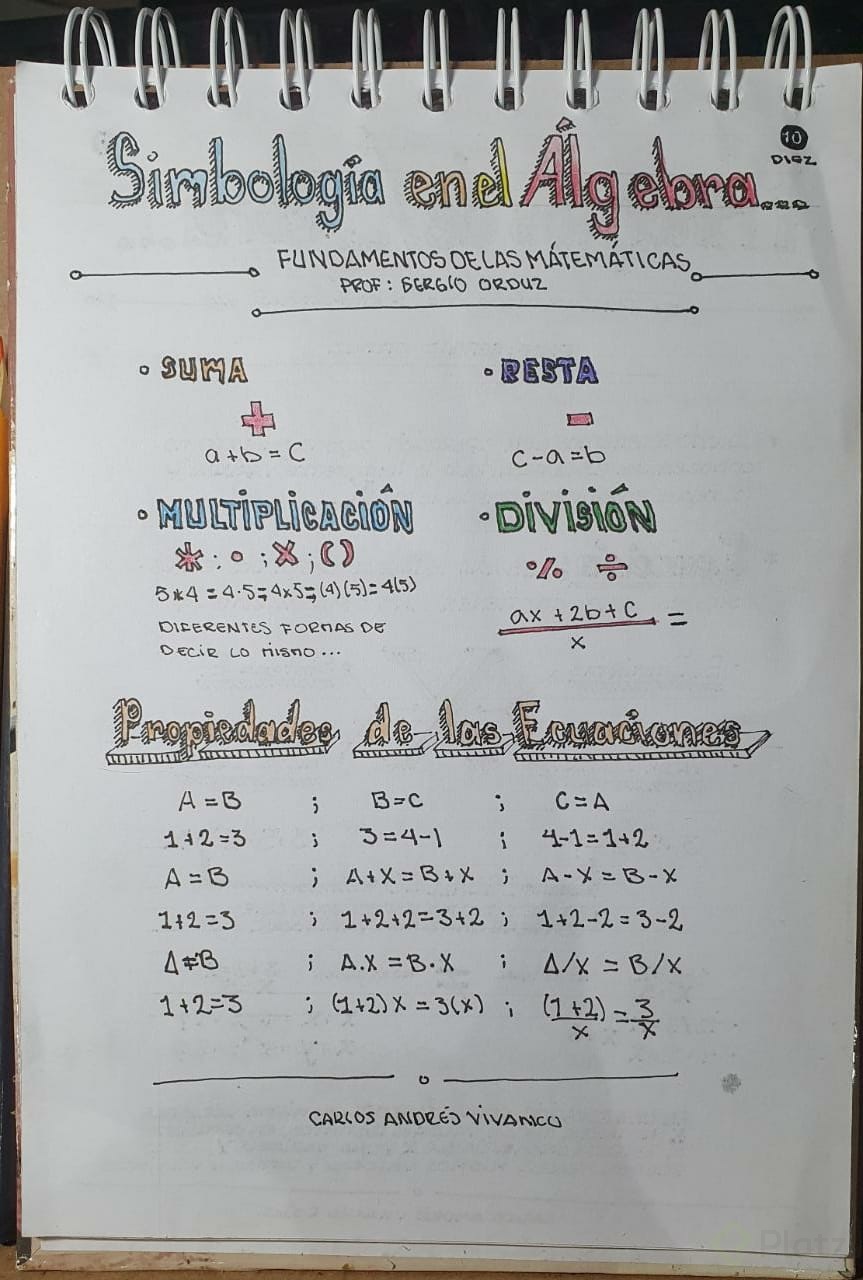 Simbología en el Álgebra...
10
DIEZ
FUNDAMENTOS DE LAS MÁTEMÁTICAS
PROF: SERGIO ORDUZ
• SUMA
+
a+b=c
• RESTA
-
c-a=b
• MULTIPLICACIÓN
* ; • ; X ; ( )
5*4 = 4·5 = 4x5 = (4)(5) = 4(5)
DIFERENTES FORMAS DE
DECIR LO MISMO...
• DIVISIÓN
% ÷
ax+2b+c =
x
Propiedades de las Ecuaciones
A=B ; B=C ; C=A
1+2=3 ; 3=4-1 ; 4-1=1+2
A=B ; A+X=B+X ; A-X=B-X
1+2=3 ; 1+2+2=3+2 ; 1+2-2=3-2
A=B ; A.X=B.X ; A/X=B/X
1+2=3 ; (1+2)X=3(X) ; (1+2)/X = 3/X
CARLOS ANDRÉS VIVANCO
Platzi